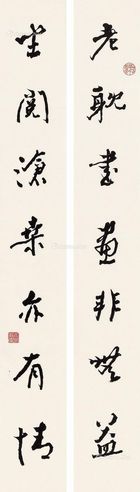 老耽書畫非無益
坐閱滄桑亦有情